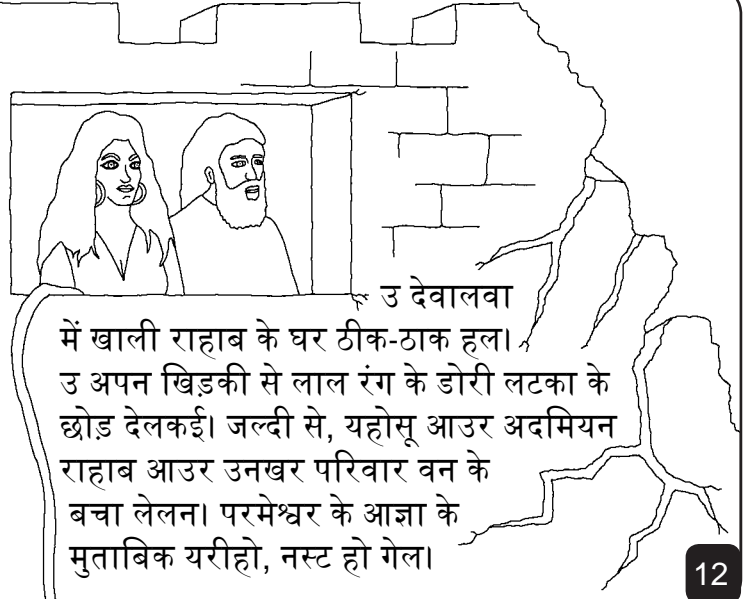 उ देवालवा
में खाली राहाब के घर ठीक-ठाक हल।
उ अपन खिड़की से लाल रंग के डोरी लटका के
छोड़ देलकई। जल्दी से, यहोसू आउर अदमियन
राहाब आउर उनखर परिवार वन के
बचा लेलन। परमेश्वर के आज्ञा के
मुताबिक यरीहो, नस्ट हो गेल।
12